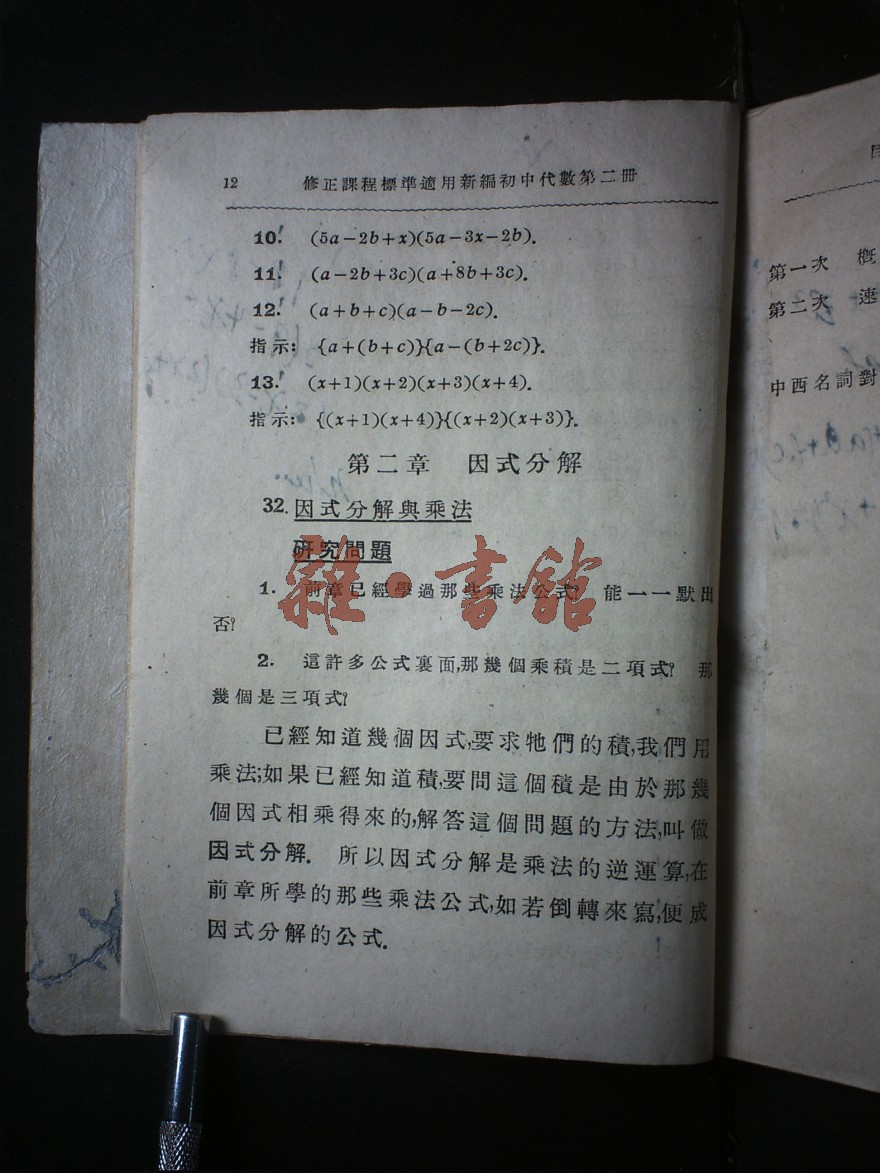 12 修正課程標準適用新編初中代數第二册
10. (5a-2b+x)(5a-3x-2b).
11. (a-2b+3c)(a+8b+3c).
12. (a+b+c)(a-b-2c).
指示: {a+(b+c)}{a-(b+2c)}.
13. (x+1)(x+2)(x+3)(x+4).
指示: {(x+1)(x+4)}{(x+2)(x+3)}.
第二章 因式分解
32. 因式分解與乘法
研究問題
1. 前章已經學過那些乘法公式? 能一一默出
否?
2. 這許多公式裏面,那幾個乘積是二項式? 那
幾個是三項式?
已經知道幾個因式,要求牠們的積,我們用
乘法;如果已經知道積,要問這個積是由於那幾
個因式相乘得來的,解答這個問題的方法,叫做
因式分解. 所以因式分解是乘法的逆運算,在
前章所學的那些乘法公式,如若倒轉來寫,便成
因式分解的公式.
雜·書館
第一次 概
第二次 速
中西名詞對